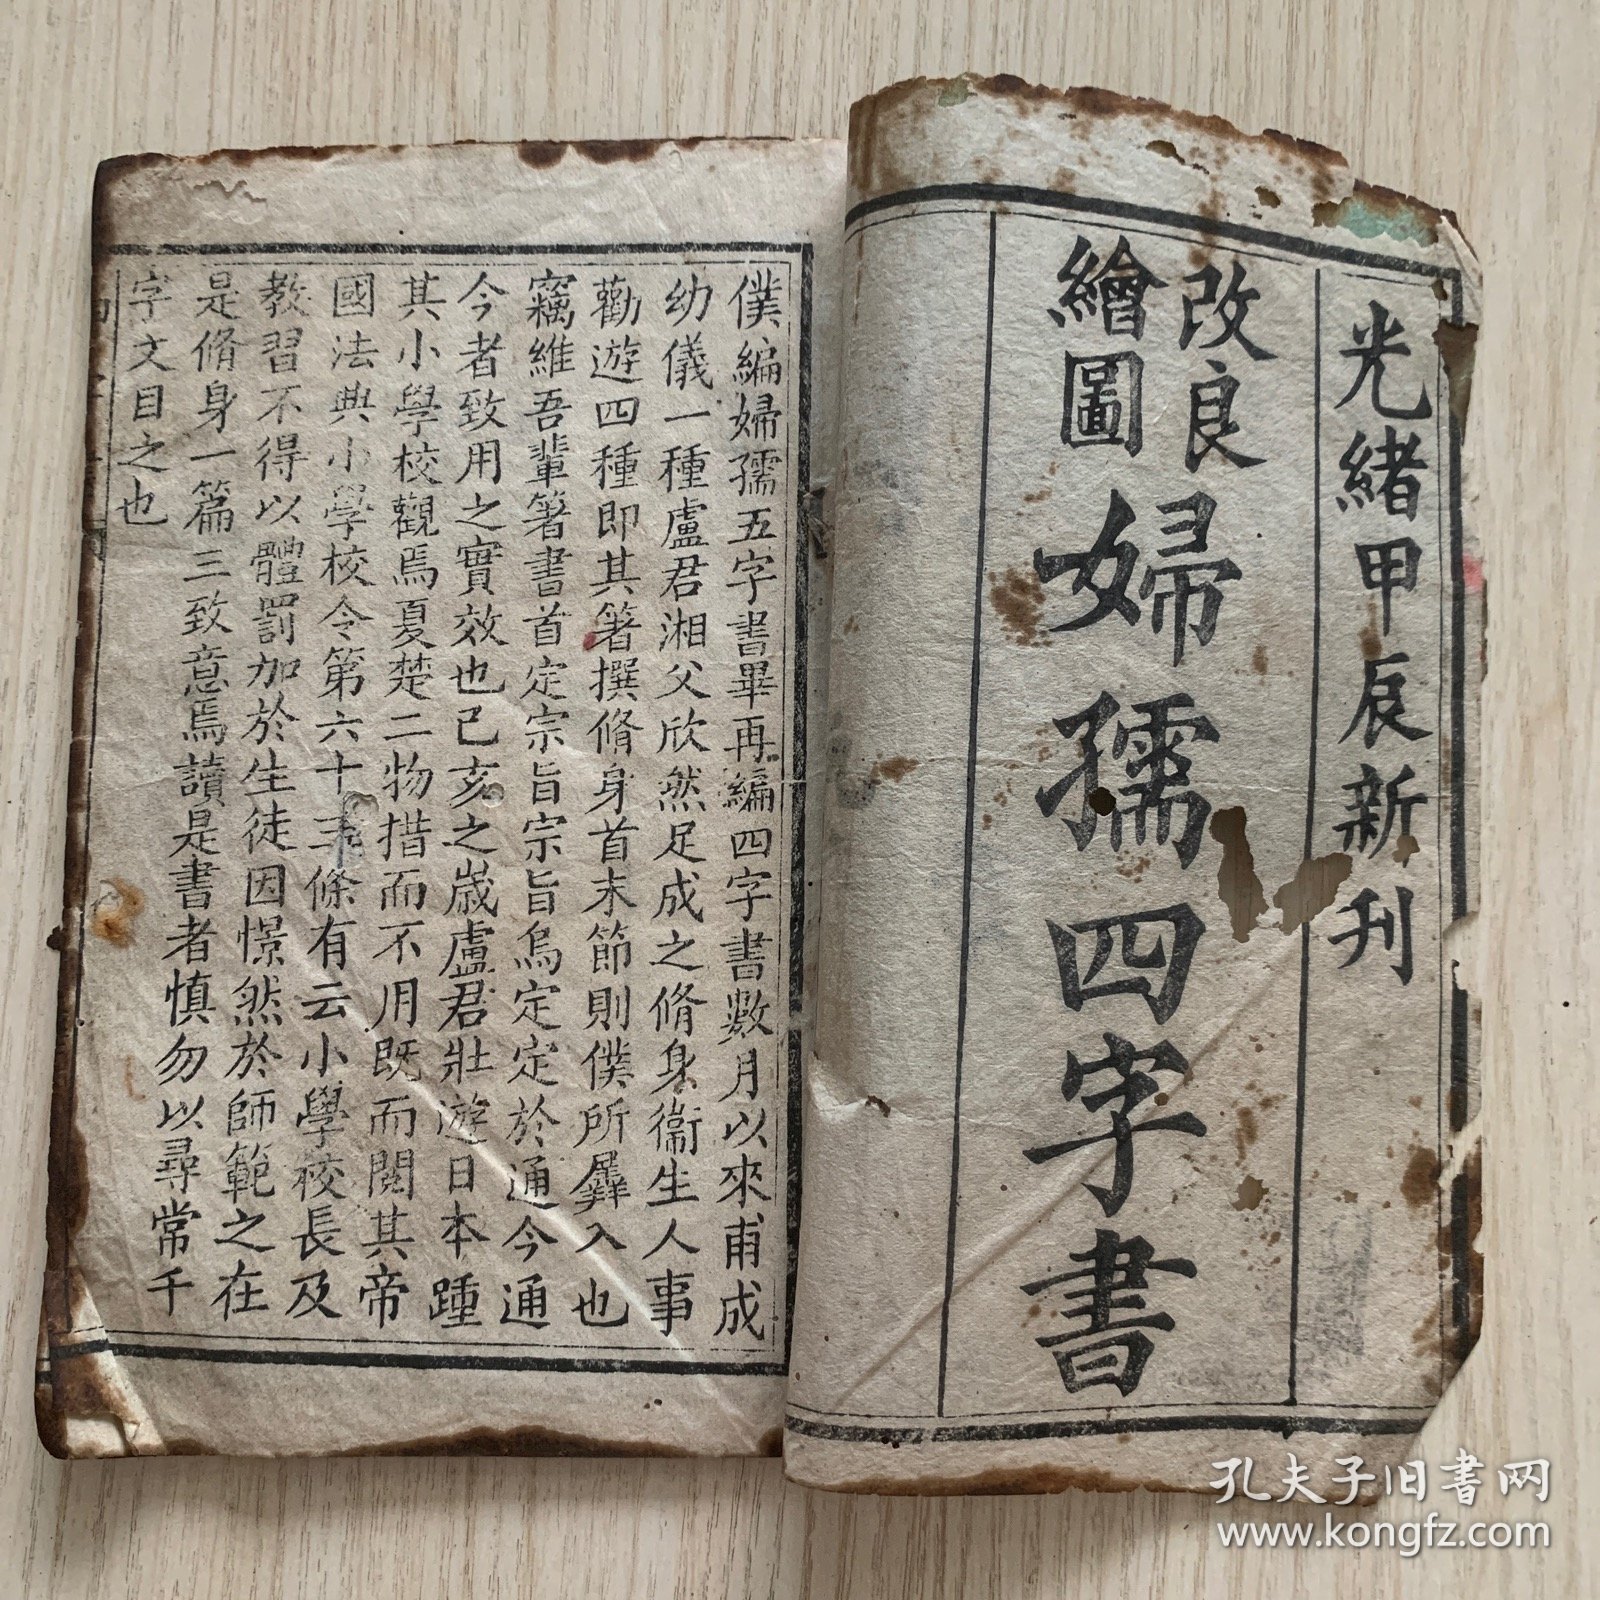 光緒甲辰新刊
改良
繪圖
婦孺四字書
僕編婦孺五字書畢再編四字書數月以來甫成
幼儀一種盧君湘父欣然足成之脩身衞生人事
勸遊四種即其箸撰脩身首末節則僕所羼入也
竊維吾輩箸書首定宗旨宗旨烏定定於通今通
今者致用之實效也已亥之歲盧君壯遊日本踵
其小學校觀焉夏楚二物措而不用既而閱其帝
國法典小學校令第六十三條有云小學校長及
教習不得以體罰加於生徒因憬然於師範之在
是脩身一篇三致意焉讀是書者慎勿以尋常千
字文目之也
孔夫子旧书网
www.kongfz.com